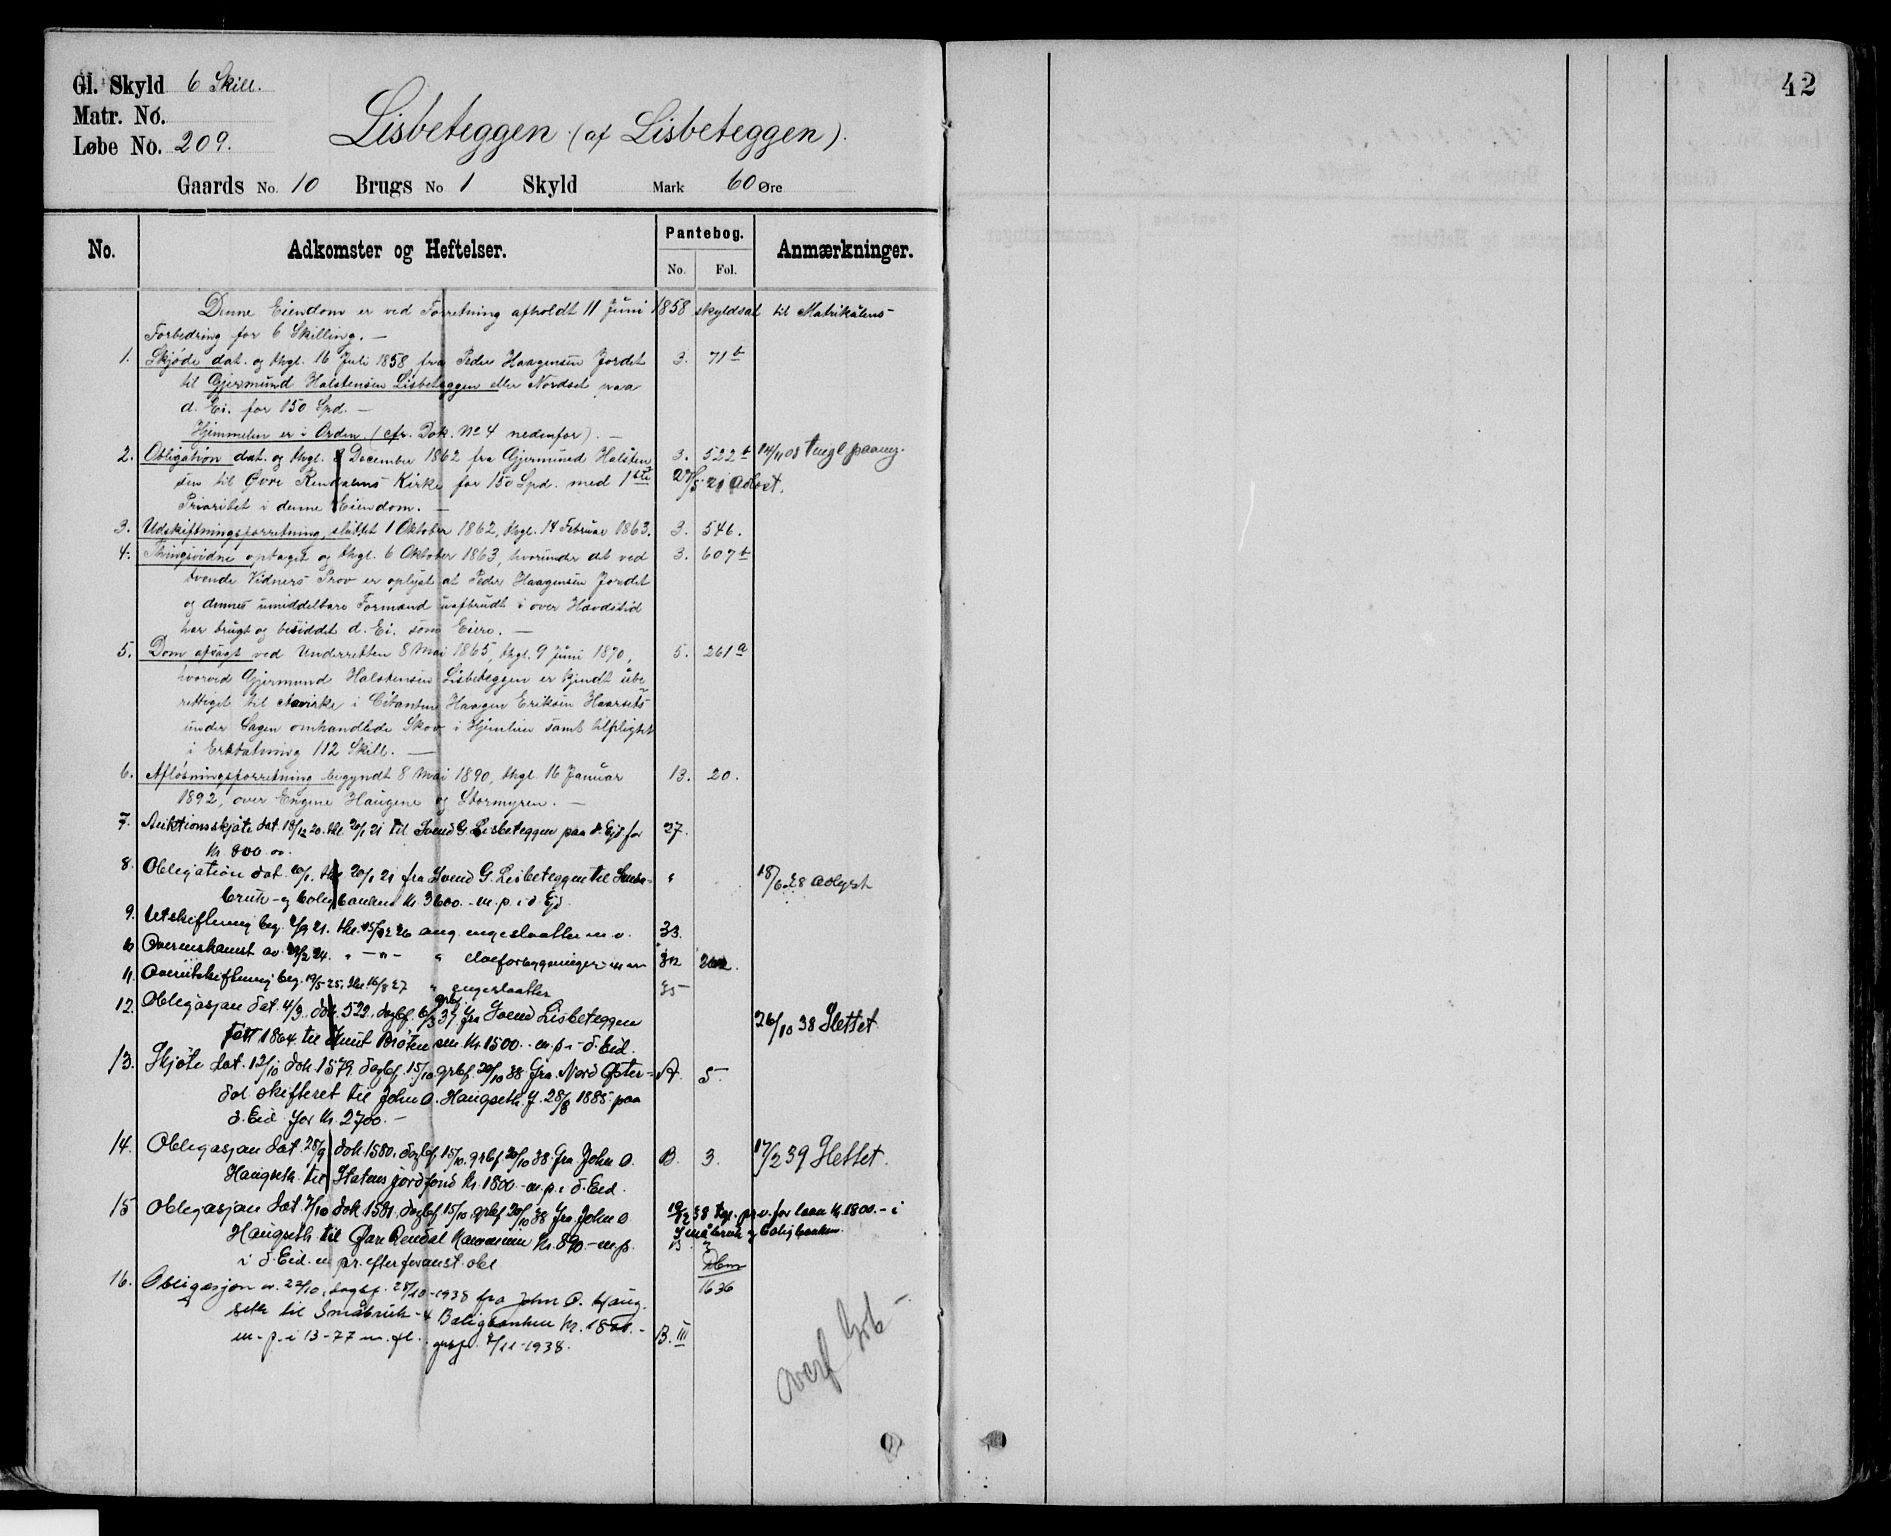 42
Gl. Skyld 6 Skill.
Matr. No.
Løbe No. 209.
Lisbeteggen (af Lisbeteggen).
Gaards No. 10 Brugs No 1 Skyld Mark 60 Øre
No. Adkomster og Heftelser. Pantebog. No. Fol. Anmærkninger.
Denne Eiendom er ved Forretning afholdt 11 Juni 1858 skyldsat til Matrikülens
Forbedring for 6 Skilling. —
1. Skjøde dat. og thgl. 16 Juli 1858 fra Peder Haagensen Jordet 3. 71b
til Gjermund Halstensen Lisbeteggen eller Nordset paa
d. Ei. for 150 Spd. —
Hjemmelen er i Orden (cfr. Dok. No 4 nedenfor). —
2. Obligation dat. og thgl. 8 December 1862 fra Gjermund Halsten- 3. 522b 14/11 08 tingl. paany.
sen til Øvre Rendalens Kirke for 150 Spd. med 1ste 27/5 21 avlyst.
Prioritet i denne Eiendom. —
3. Udskiftningsforretning, sluttet 1 Oktober 1862, thgl. 14 Februar 1863. 3. 546.
4. Thingsvidne optaget og thgl. 6 Oktober 1863, hvorunder det ved 3. 607b
tvende Vidners Prov er oplyst at Peder Haagensen Jordet
og dennes umiddelbare Formand uafbrudt i over Hævdstid
har brugt og besiddet d. Ei. som Eiere. —
5. Dom afsagt ved Underretten 8 Mai 1865, thgl. 9 Juni 1870, 5. 261a
hvorved Gjermund Halstensen Lisbeteggen er kjendt ube-
rettiget til Aavirke i Citanten Haagen Eriksen Haarsets
under Sagen omhandlede Skov i Hjemlien samt tilpligtet
i Erstatning 112 Skill. —
6. Afløsningsforretning begyndt 8 Mai 1890, thgl. 16 Januar 13. 20.
1892, over Engene Haugene og Stormyren. —
7. Auktionsskjøte dat. 18/12 20. thl. 20/1 21 til Svend G. Lisbeteggen paa d. Ejd. for 27.
Kr. 800.00
8. Obligation dat. 20/1. thl. 20/1 21 fra Svend G. Lisbeteggen til Småa- " 18/6 28 avlyst
bruk- og boligbanken Kr. 3600.- m. p. i d. Ejd.
9. Utskiftning beg. 2/9 21. thl. 15/12 26 ang. engeslaatter m. v. 33.
10 Overenskomst av 29/2 24. " -"- " elveforbygninger m. m 32 202.
11. Overutskiftning beg. 19/5 25. thl. 16/8 27 " engeslaatter 35
12. Obligasjon dat. 4/3, dok. 522, dagbf. grbf. 6/3 37 fra Svend Lisbeteggen
født 1864 til Knut Bråten sen Kr. 1500.- m. p. - d. Eid. 26/10 38 Slettet.
13. Skjøte dat. 12/10 dok 1579 dagbf. 15/10 grbf. 20/10 38 fra Nord Øster- A. 5.
dal skifteret til John O. Haugseth f. 28/8 1885 paa
d. Eid for Kr. 2700.-
14. Obligasjon dat. 28/9 dok 1580, dagbf 15/10, grbf 20/10 38 fra John O. B. 3. 17/2 39 Slettet.
Haugseth til Statens jordfond Kr. 1800.- m. p. i d. Eid.
15 Obligasjon dat. 7/10 dok 1581, dagbf 15/10, grbf 20/10 38 fra John O 19/12 38 tgl. pr. v. for laan Kr. 1800.- i
Haugseth til Øvre Rendal Kommune Kr. 890.- m. p. Småbruk og boligbanken.
i d. Eid. m pr. efter foranst. obl. B 3
16. Obligasjon av 22/10, dagbf. 28/10-1938 fra John O. Haug- 1636
seth til Småbruk- & Boligbanken Kr. 1800.-
m. p. i 13-77 m. fl. grbf. 2/11-1938. B. III
overf Grb